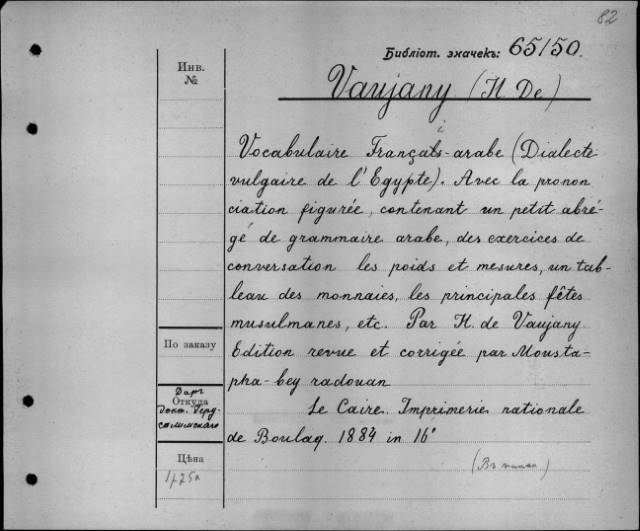 82
Библіот. значекъ: 65/50.
Инв.
№
Vaujany (H. De)
Vocabulaire Français-arabe (Dialecte
vulgaire de l'Egypte). Avec la pronon
ciation figurée, contenant un petit abré-
gé de grammaire arabe, des exercices de
conversation les poids et mesures, un tab-
leau des monnaies, les principales fêtes
musulmanes, etc. Par H. de Vaujany
Edition revue et corrigée par Mousta-
pha-bey radouan
Le Caire. Imprimerie nationale
de Boulaq. 1884 in 16°
По заказу
Даръ
Откуда
Цѣна